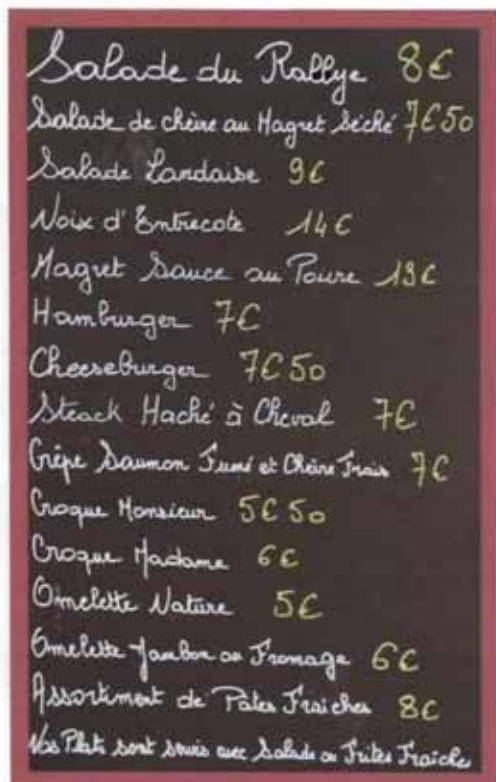 Salade du Rallye 8€
Salade de chèvre au Magret Séché 7€50
Salade Landaise 9€
Noix d'Entrecote 14€
Magret Sauce au Poivre 13€
Hamburger 7€
Cheeseburger 7€50
Steack Haché à Cheval 7€
Crêpe Saumon Fumé et Chèvre Frais 7€
Croque Monsieur 5€50
Croque Madame 6€
Omelette Nature 5€
Omelette Jambon ou Fromage 6€
Assortiment de Pâtes Fraîches 8€
Nos Plats sont servis avec Salade ou Frites Fraîches